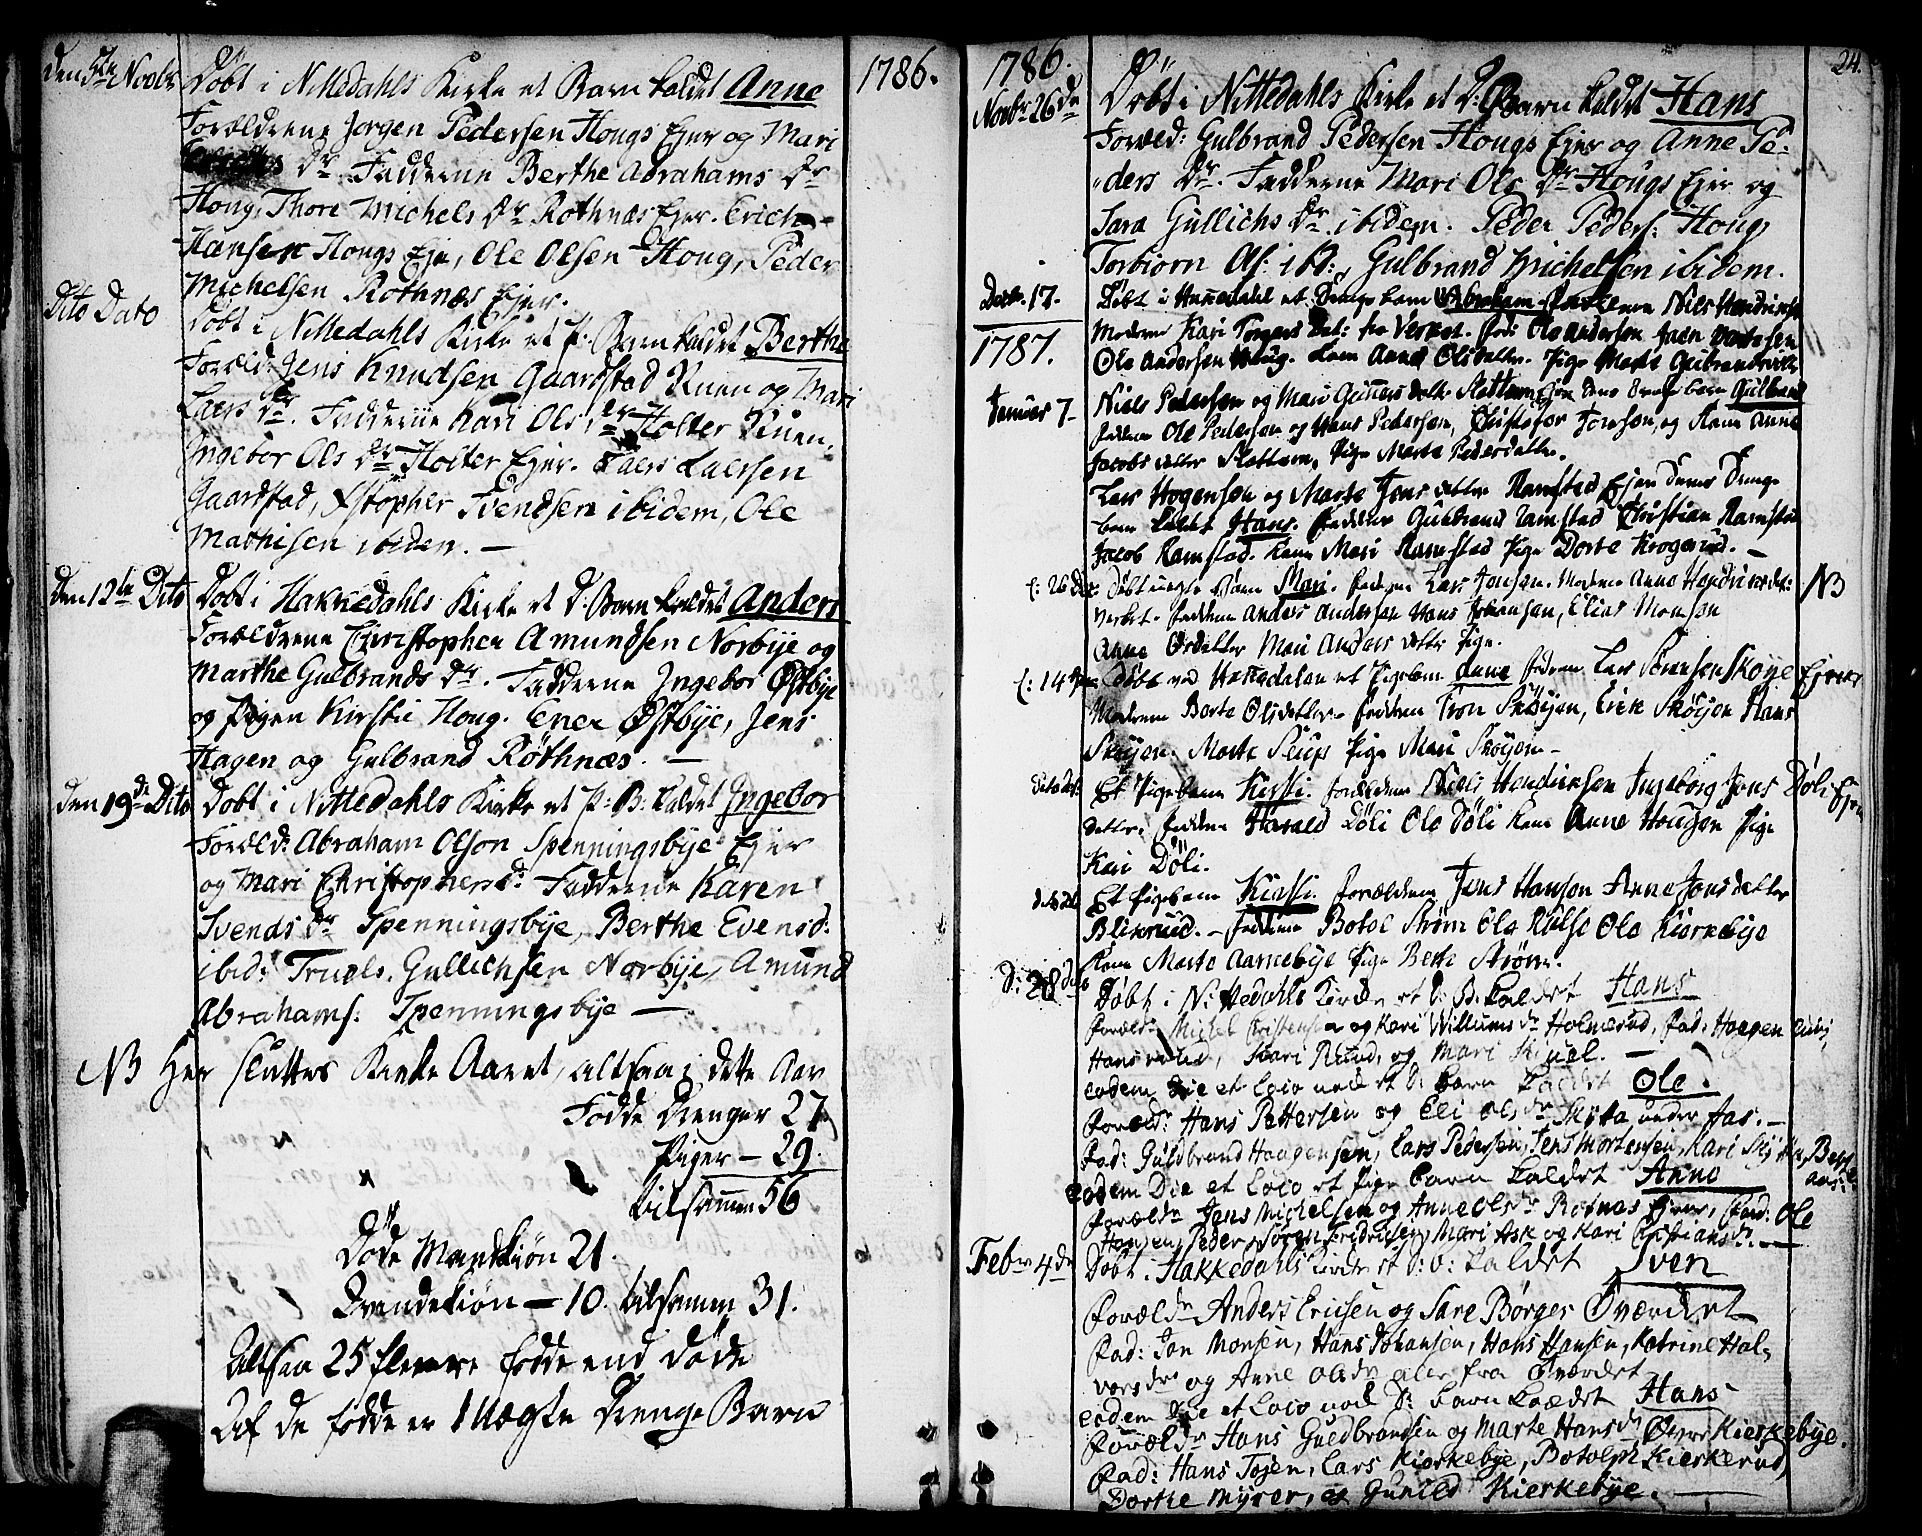 1786.
den 5te Novbr Døbt i Nittedahls Kirke et Barn kaldet Anne
Forældrene Jørgen Pedersen Hougs Ejer og Mari
Dr. Fadderne Berthe Abrahams Dr
Houg, Thore Michels Dr Røthnæs Ejer. Erich
Hansen Hougs Eje, Ole Olsen Houg, Peder
Michelsen Røthnæs Ejer.
Dito Dato Døbt i Nittedahls Kirke et P: Barn kaldet Berthe
Foræld: Jens Knudsen Gaardstad Ruen og Mari
Laers Dr. Fadderne Kari Ols Dr Holter Ruen,
Ingebor Ols Dr Holter Ejer. Laers Laersen
Gaardstad, Xstopher Svendsen ibidem, Ole
Mathisen ibiden. —
den 12te Dito Døbt i Hakkedahls Kirke et D: Barn kaldet Anders
Forældrene Christopher Amundsen Norbye og
Marthe Gulbrands Dr. Fadderne Ingebor Østbye
og Pigen Kirstie Houg. Ener Østbye, Jens
Hagen og Gulbrand Røthnæs. —
den 19de Dito Døbt i Nittedahls Kirke et P: B: kaldet Ingebor
Foræld: Abraham Olson Spenningsbye Ejer
og Mari Christophersd: Fadderne Karen
Svends Dr Spenningsbye, Berthe Evensd.
ibid: Truels Gullichsen Norbye, Amund
Abrahams: Spenningsbye —
NB Her sluttes Kirke Aaret, altsaa i dette Aar
Fødde Drenger 27
Piger — 29.
tilsammen 56
Døde Mandkiøn 21.
Qvendekiøn — 10. tilsammen 31.
Altsaa 25 fleere fødde end døde
Af de fødde er 1 Uægte Drenge Barn
24.
1786.
Novbr 26de Døbt i Nittedahls Kirke et D: Barn kaldet Hans
Foræld: Gulbrand Pedersen Hougs Ejer og Anne Pe-
ders Dr. Fadderne Mari Ols Dr Hougs Ejer og
Sara Gullichs Dr ibidem. Peder Peders: Houg,
Torbiørn Ol: ibd:, Gulbrand Michelsen ibidem.
Decbr. 17. Døbt i Hakkedahl et Drenge barn Abraham Faderen Niels Hendrichs
Moderen Kari Torgers Dat: fra Verket. Fad: Ole Andersen
Ole Andersen Houg. Kone Anne Olsdatter. Pige Marte Gulbrandsd
1787.
Januar 7 Niels Pedersen og Mari Gunners datter Slattum Ejer deres Drenge barn Gulbrand
Faddere Ole Pedersen og Hans Pedersen, Christofer Jonsen, og Kone Anne
Jacobs datter Slattum, Pige Marte Pedersdatter.
Lars Hogensen og Marte Jens datter Ramstad Ejer deres Drenge
barn kaldet Hans. Faddere Gulbrand Ramstad Christian Ramstad
Jacob Ramstad. Kone Mari Ramstad Pige Dorte Krogerud. —
Døbt uægte Barn Mari. Faderen Lars Jonsen. Moderen Anne Hendricksdt: NB
Verket. Faddere Anders Andersen Hans Johansen, Elias Monsen
Anne Olsdatter Mari Anders datter Pige.
Døbt ved Hakedalen et Pigebarn Anne Faderen Lars Sørensen Skøye Ejer
Moderen Berte Olsdatter. Faddere Tron Skøyen, Erik Skøyen Hans
Skøyen. Marte Seips Pige Mari Skøyen —
Et Pigebarn Kirsti. Forældrene Niels Hendricksen Ingeborg Jens Døli Ejer
datter, Faddere Harald Døli Ole Døli Kone Anne Hougen Pige
Kari Døli.
Et Pigebarn Kirsti. Forældrene Jens Hansen Anne Jonsdatter
Bliksrud. — Faddere Botol Strøm Ola Ole Kierkebye
Kone Marte Aannebye Pige Berte Strøm.
D: 28de Døbt i Nittedahls Kirke et D: B: kaldet Hans
Foræld: Michel Christensen og Kari Williums Dr Holmerud, Fad: Haagen
Hans Kari Ruud, og Mari
eodem Die et Loco nok et D: Barn kaldet Ole.
Foræld: Hans Pettersen og Eli Olsdr Skytta under Aas. —
Fad: Guldbrand Haagensen, Lars Pedersen, Jens Mortensen, Kari Skytta, Berte
Aas:
eodem Die et Loco et Pige Barn kaldet Anne
Foræld: Jens Michelsen og Anne Olsdr Rotnæs Ejer, Fad: Ole
Hansen, Peder Søren Fridrichsen, Mari Ask og Kari Christiansdr. —
Febr 4de Døbt i Hakkedahls Kirke et D: B: kaldet Sven
Foræld: Anders Ericsen og Sare Børges Øværdet
Fad: Jon Monsen, Hans Johansen, Hans Hansen, Katrine Hal-
vorsdr og Anne Olsdr alle fra Øværdet
eodem Die et Loco nok D: Barn kaldet Hans
Foræld: Hans Guldbrandsen og Marte Hansdr Øvre Kierkebye.
Fad: Hans Tøjen, Lars Kierkebye, Botolph Kierkerud,
Dorthe Myrer, og Gunild Kierkebye. —